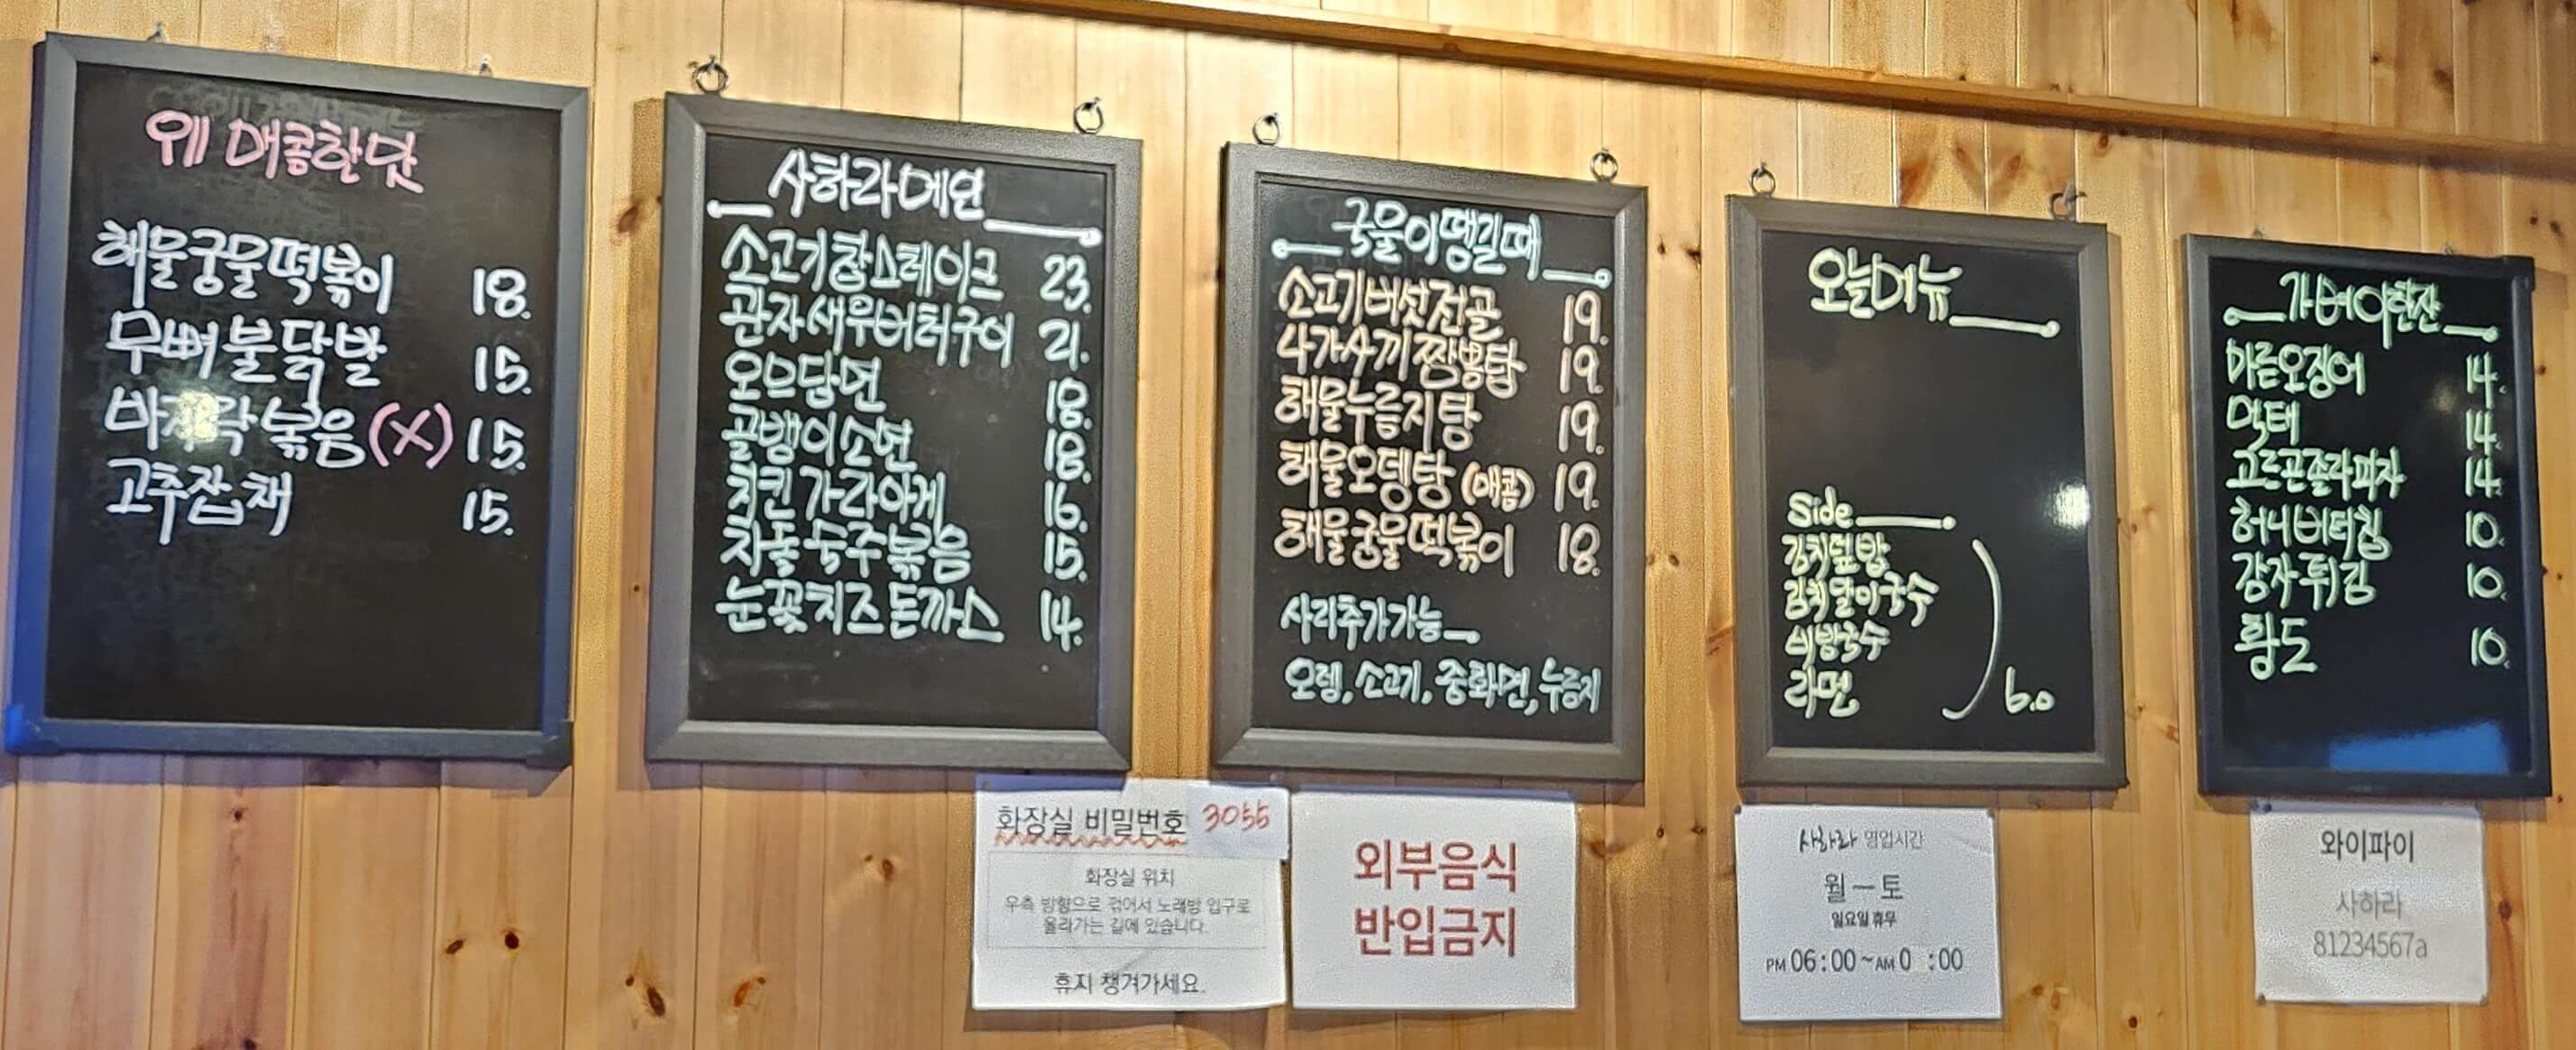 왜 매콤한닷
해물궁물떡볶이 18.
무뼈불닭발 15.
바지락볶음(X) 15.
고추잡채 15.
사하라메인
소고기찹스테이크 23.
관자새우버터구이 21.
오므담면 18.
골뱅이소면 18.
치킨가라아게 16.
차돌숙주볶음 15.
눈꽃치즈돈까스 14.
국물이땡길때
소고기버섯전골 19.
사가사끼짬뽕탕 19.
해물누룽지탕 19.
해물오뎅탕 (매콤) 19.
해물궁물떡볶이 18.
사리추가가능
오뎅, 소고기, 중화면, 누룽지
오늘메뉴
Side
김치덮밥
김치말이국수
비빔국수
라면
6.0
가벼이한잔
마른오징어 14.
먹태 14.
고르곤졸라피자 14.
허니버터칩 10.
감자튀김 10.
황도 10.
화장실 비밀번호 3055
화장실 위치
우측 방향으로 꺾어서 노래방 입구로
올라가는 길에 있습니다.
휴지 챙겨가세요.
외부음식
반입금지
사하라 영업시간
월 — 토
일요일 휴무
PM 06:00 ~ AM 0 :00
와이파이
사하라
81234567a